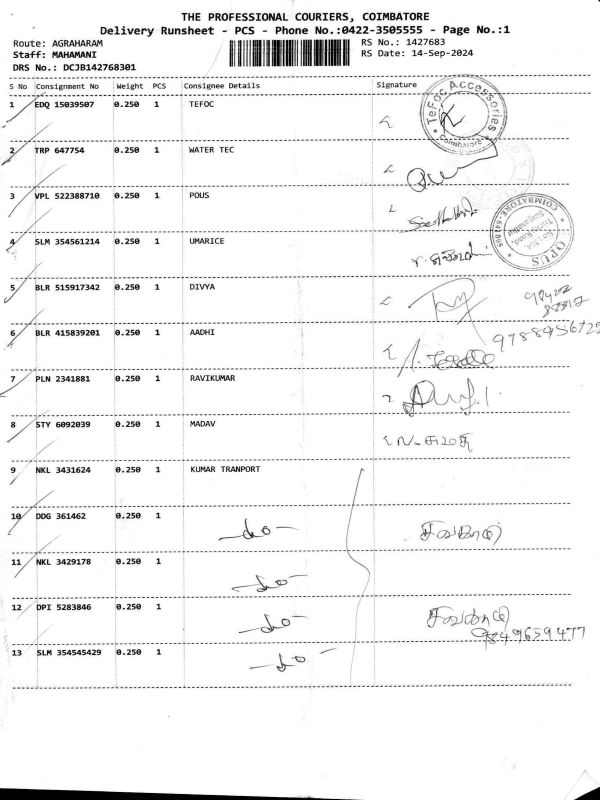 THE PROFESSIONAL COURIERS, COIMBATORE
Delivery Runsheet - PCS - Phone No.:0422-3505555 - Page No.:1
Route: AGRAHARAM
Staff: MAHAMANI
DRS No.: DCJB142768301
RS No.: 1427683
RS Date: 14-Sep-2024
S No Consignment No Weight PCS Consignee Details Signature
1 EDQ 15039507 0.250 1 TEFOC
TeFoc Accessories
Coimbatore
2 TRP 647754 0.250 1 WATER TEC
3 VPL 522388710 0.250 1 POUS
4 SLM 354561214 0.250 1 UMARICE
OPUS
COIMBATORE-641005
5 BLR 515917342 0.250 1 DIVYA
6 BLR 415839201 0.250 1 AADHI
7 PLN 2341881 0.250 1 RAVIKUMAR
8 STY 6092039 0.250 1 MADAV
9 NKL 3431624 0.250 1 KUMAR TRANPORT
10 DDG 361462 0.250 1 -do-
11 NKL 3429178 0.250 1 -do-
12 DPI 5283846 0.250 1 -do-
9849659477
13 SLM 354545429 0.250 1 -do-